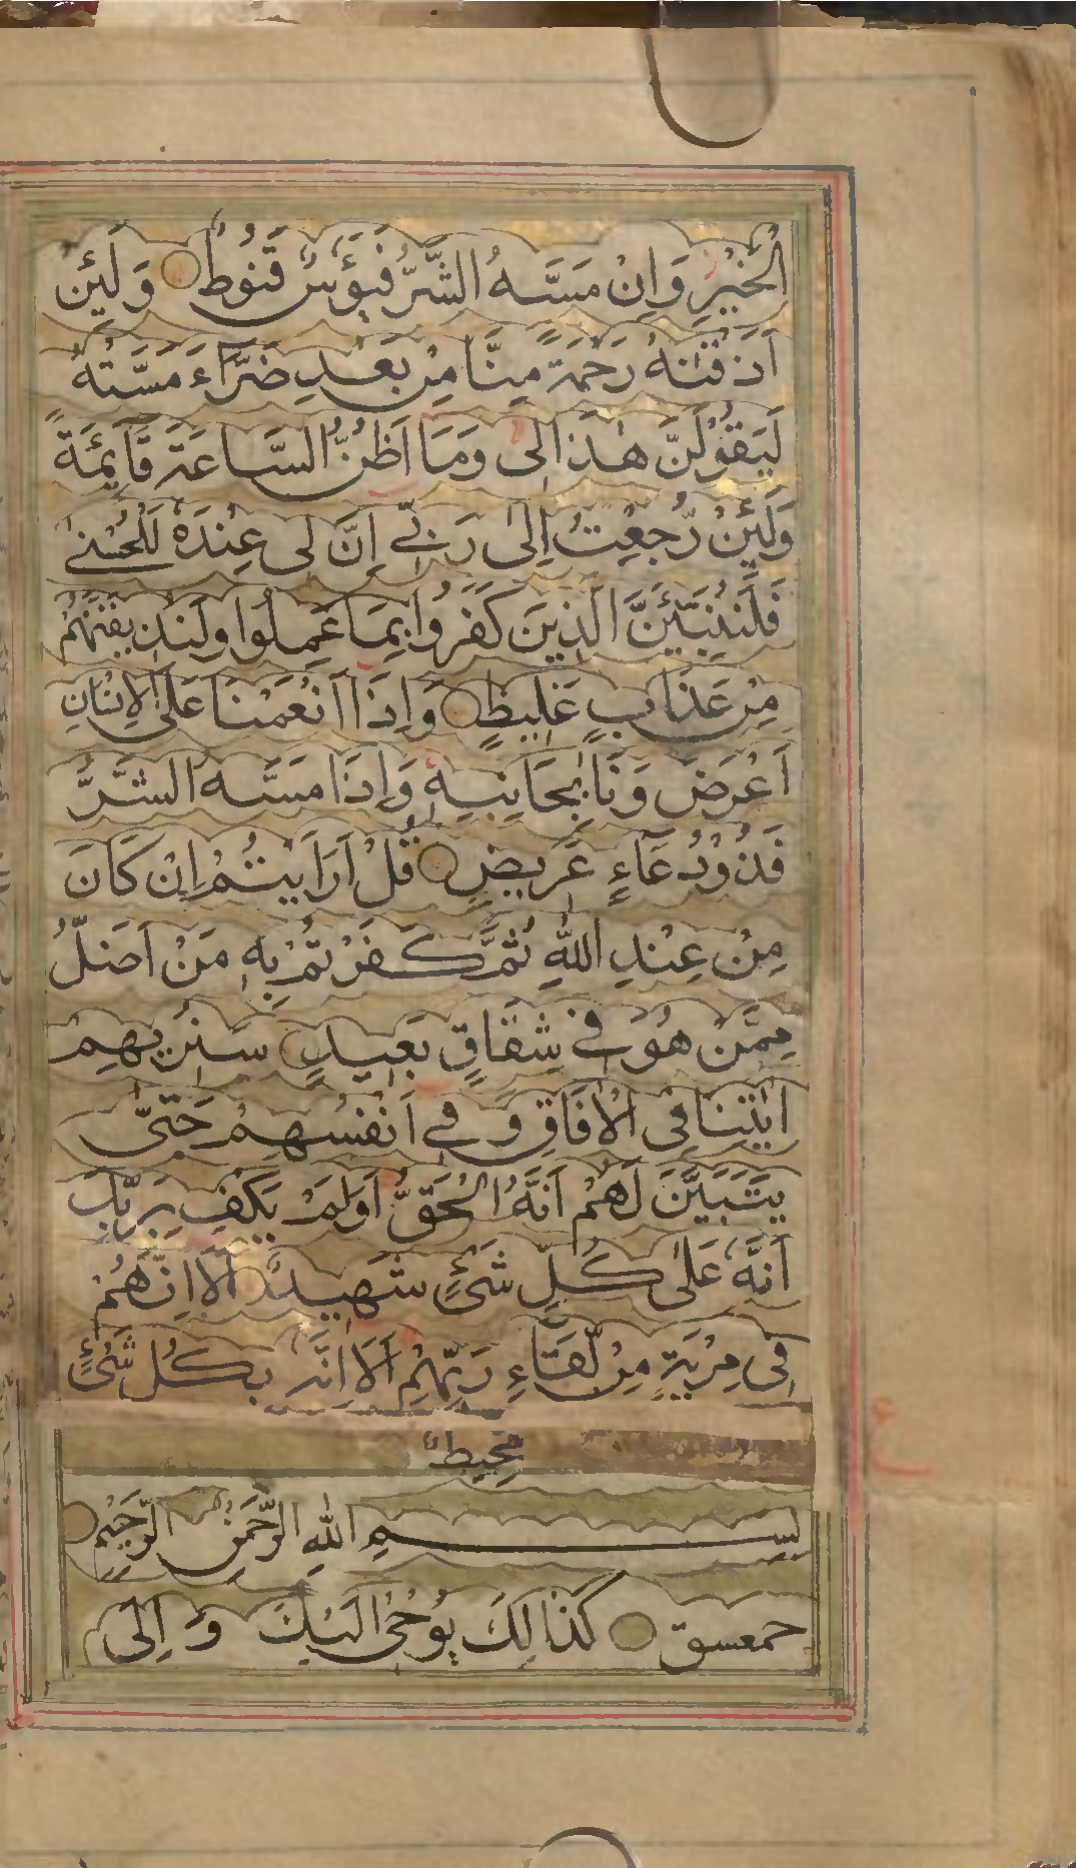 الْخَيْرِ وَاِنْ مَسَّهُ الشَّرُّ فَيَؤُسٌ قَنُوطٌ وَلَئِنْ
اَذَقْنٰهُ رَحْمَةً مِنَّا مِنْ بَعْدِ ضَرَّاءَ مَسَّتْهُ
لَيَقُوْلَنَّ هٰذَا لِى وَمَا اَظُنُّ السَّاعَةَ قَايِمَةً
وَلَئِنْ رُّجِعْتُ اِلٰى رَبِّى اِنَّ لِى عِنْدَهٗ لَلْحُسْنٰى
فَلَنُنَبِّئَنَّ الَّذِينَ كَفَرُوا بِمَا عَمِلُوا وَلَنُذِيقَنَّهُمْ
مِنْ عَذَابٍ غَلِيظٍ وَاِذَا اَنْعَمْنَا عَلَى الْاِنْسَانِ
اَعْرَضَ وَنَاٰ بِجَانِبِهٖ وَاِذَا مَسَّهُ الشَّرُّ
فَذُوْ دُعَاءٍ عَرِيضٍ قُلْ اَرَاَيْتُمْ اِنْ كَانَ
مِنْ عِنْدِ اللّٰهِ ثُمَّ كَفَرْتُمْ بِهٖ مَنْ اَضَلُّ
مِمَّنْ هُوَ فِى شِقَاقٍ بَعِيدٍ سَنُرِيهِمْ
اٰيٰتِنَا فِى الْاٰفَاقِ وَفِى اَنْفُسِهِمْ حَتّٰى
يَتَبَيَّنَ لَهُمْ اَنَّهُ الْحَقُّ اَوَلَمْ يَكْفِ بِرَبِّكَ
اَنَّهٗ عَلٰى كُلِّ شَىْءٍ شَهِيدٌ اَلَا اِنَّهُمْ
فِى مِرْيَةٍ مِنْ لِّقَاءِ رَبِّهِمْ اَلَا اِنَّهٗ بِكُلِّ شَىْءٍ
مُحِيطٌ
ع
بِسْمِ اللّٰهِ الرَّحْمٰنِ الرَّحِيْمِ
حمعسق كَذٰالِكَ يُوْحٰى اِلَيْكَ وَ اِلَى